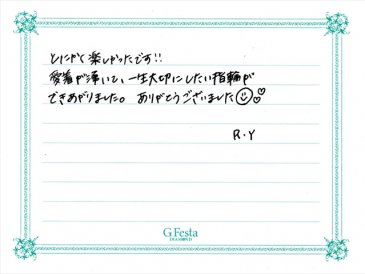 とにかく楽しかったです!!
愛着が湧いて、一生大切にしたい指輪が
できあがりました。ありがとうございました
R.Y
G.Festa
DIAMOND